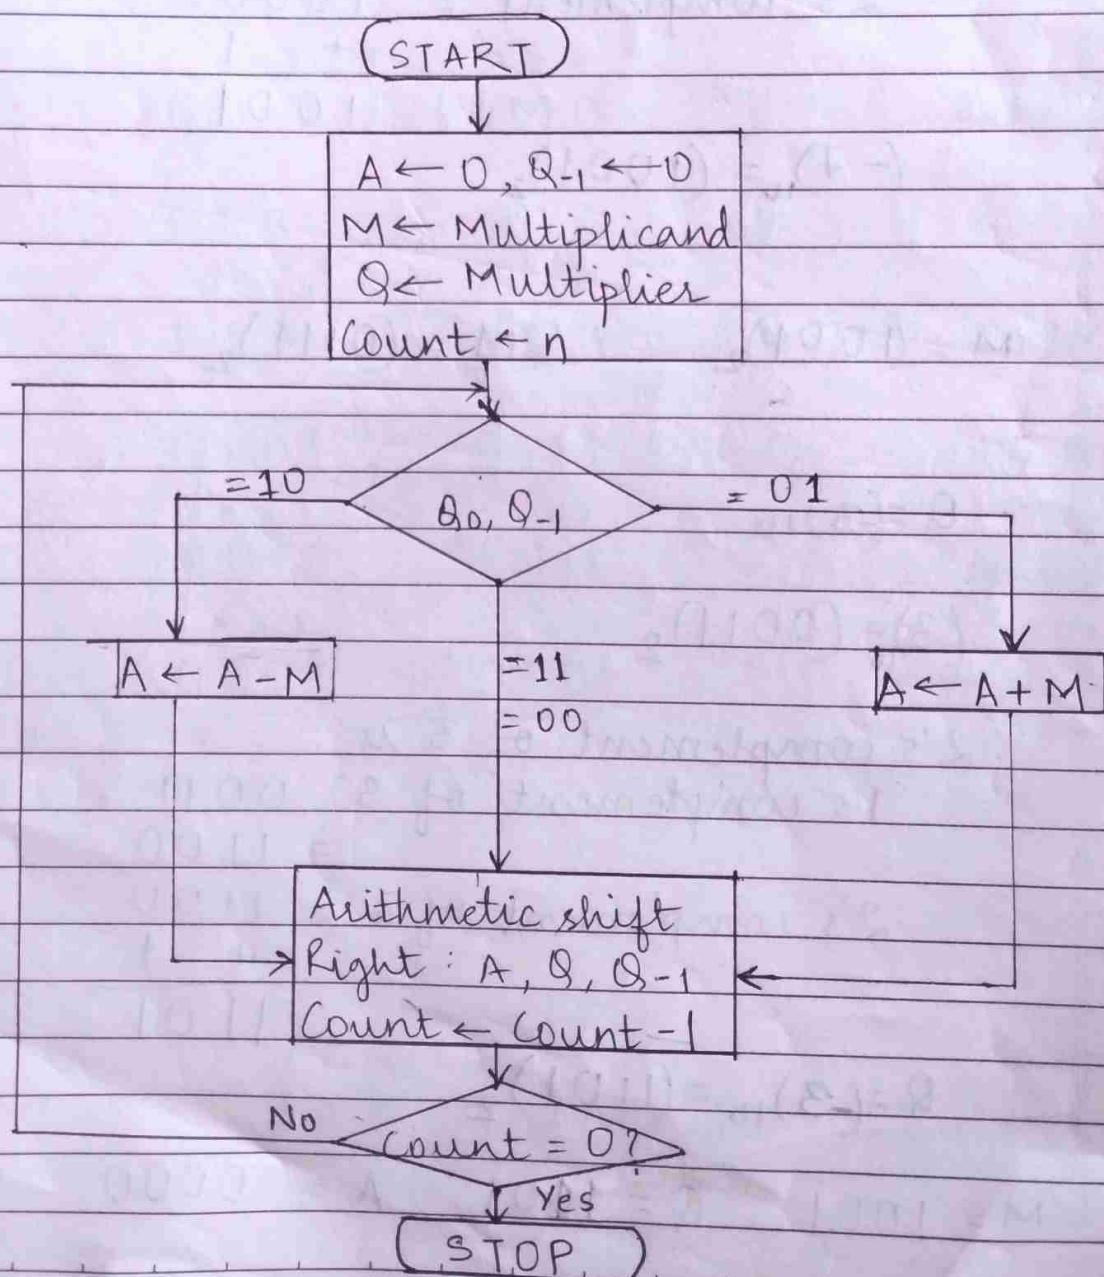 START
A ← 0, Q-1 ← 0
M ← Multiplicand
Q ← Multiplier
Count ← n
=10
Q0, Q-1
= 01
A ← A - M
=11
=00
A ← A + M
Arithmetic shift
Right : A, Q, Q-1
Count ← Count - 1
No
Count = 0?
Yes
STOP